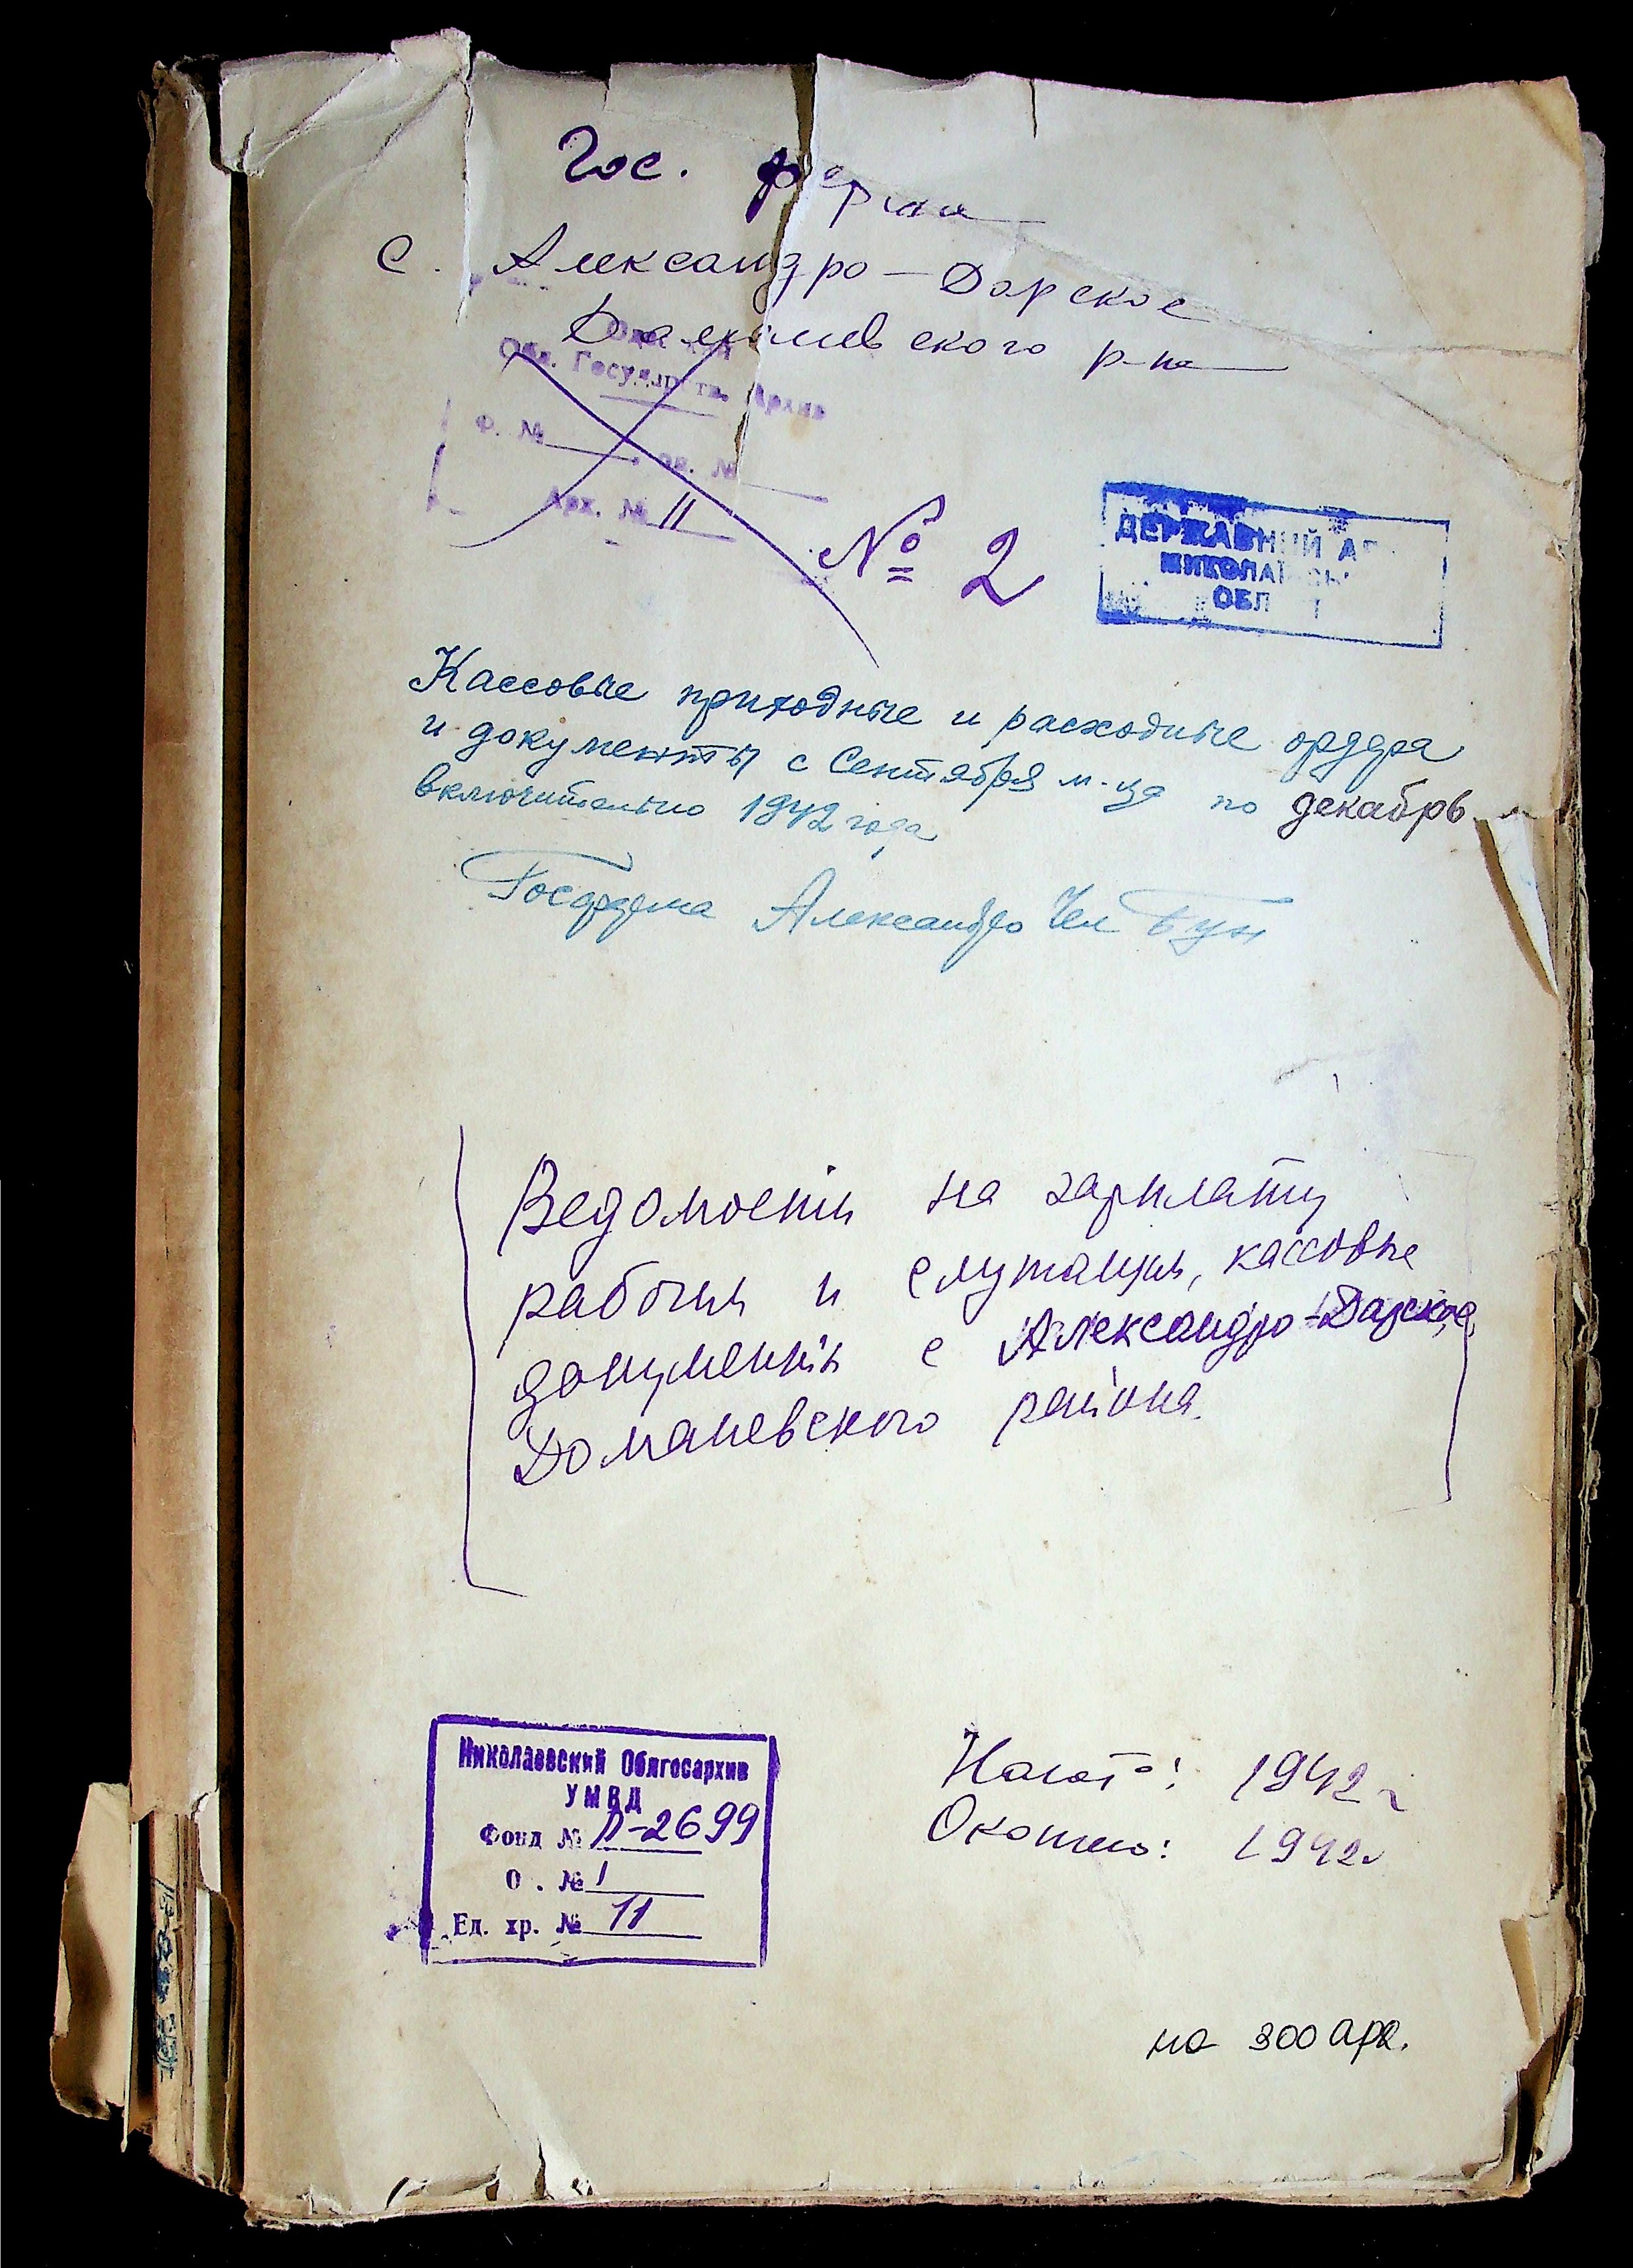 Гос. ферма
с. Александро-Дарское
Доманевского р-на
Одесский
Обл. Государств. Архив
Ф. № оп. №
Арх. № 11
№ 2
ДЕРЖАВНИЙ АР
МИКОЛАЇВСЬК
ОБЛ Т
Кассовые приходные и расходные ордера
и документы с Сентября м-ца по декабрь
включительно 1942 года
Госферма Александро Чел Бун
Ведомости на зарплату
рабочим и служащим, кассовые
документы с Александро-Дарское
Доманевского района.
Николаевский Облгосархив
УМВД
Фонд № Р-2699
О. № 1
Ед. хр. № 11
Начато: 1942 г
Окончено: 1942 г
на 300 арк.